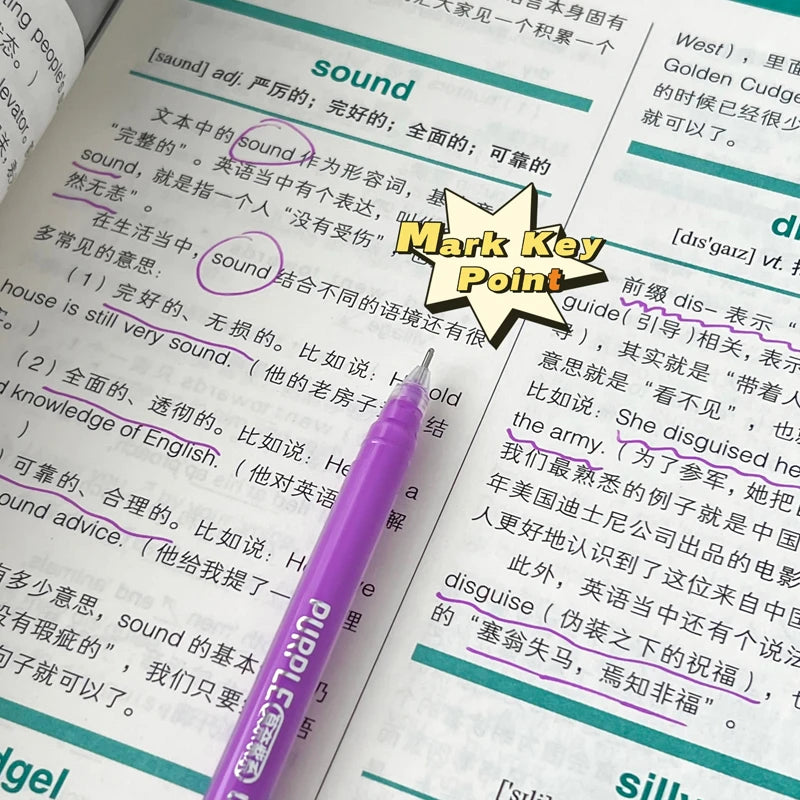 ing people's
态。）
levator.
大家见一个积累一个
sound
[saʊnd] adj. 严厉的；完好的；全面的；可靠的
文本中的 sound 作为形容词，基
“完整的”。英语当中有个表达，
sound，就是指一个人“没有受伤”
然无恙”。
在生活当中，sound 结合不同的语境还有很
多常见的意思：
（1）完好的、无损的。比如说：H old
house is still very sound.（他的老房子 结
）
（2）全面的、透彻的。比如说：He a
knowledge of English.（他对英语 解
）
）可靠的、合理的。比如说：He ve
ound advice.（他给我提了一 理
有多少意思，sound 的基本 乃
没有瑕疵的”，我们只要 语
句子就可以了。
dgel
Mark Key
Point
PURPLE
West），里面
Golden Cudge
的时候已经很少
就可以了。
di
[dɪsˈɡaɪz] vt.
前缀 dis– 表示“
guide（引导）相关，表示
导），其实就是“带着人
意思就是“看不见”，也
比如说：She disguised he
the army.（为了参军，她把
我们最熟悉的例子就是中国
年美国迪士尼公司出品的电影
人更好地认识到了这位来自中国
此外，英语当中还有个说法
disguise（伪装之下的祝福），也
的“塞翁失马，焉知非福”。
silly